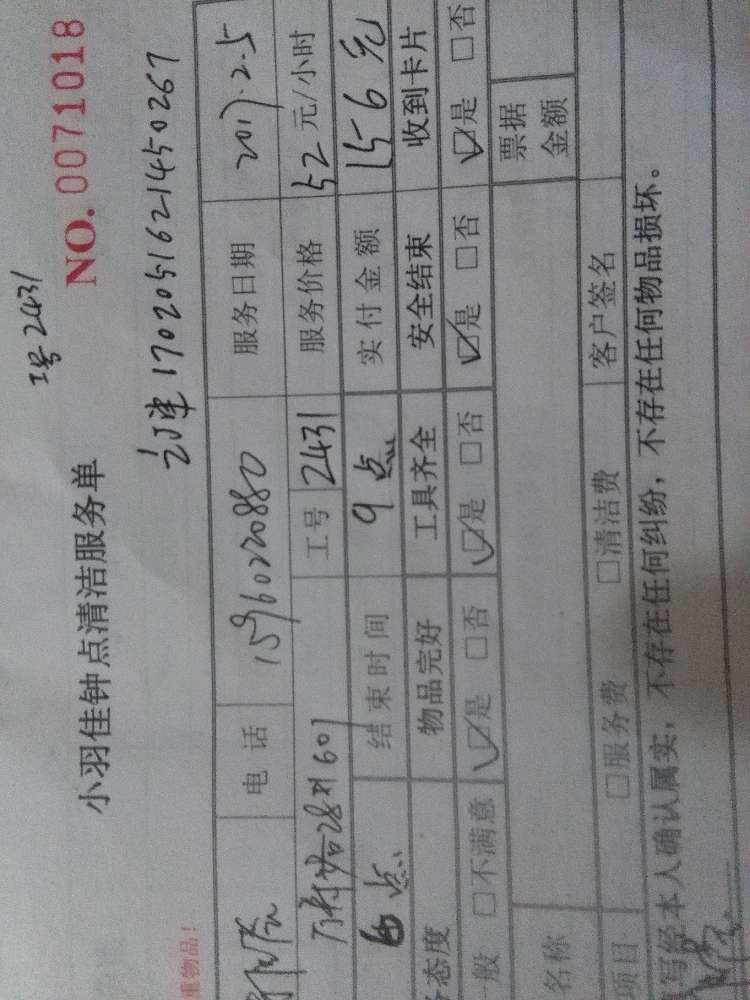 工号 2431
小羽佳钟点清洁服务单 NO. 0071018
订单 17020516214450267
重物品!
电话 15960220880 服务日期 2017.2.5
28# 601 工号 2431 服务价格 52 元/小时
6点 结束时间 9点 实付金额 156元
务态度 物品完好 工具齐全 安全结束 收到卡片
般 □不满意 ☑是 □否 ☑是 □否 ☑是 □否 ☑是 □否
名称 票据金额
项目 □服务费 □清洁费 客户签名
写经本人确认属实，不存在任何纠纷，不存在任何物品损坏。